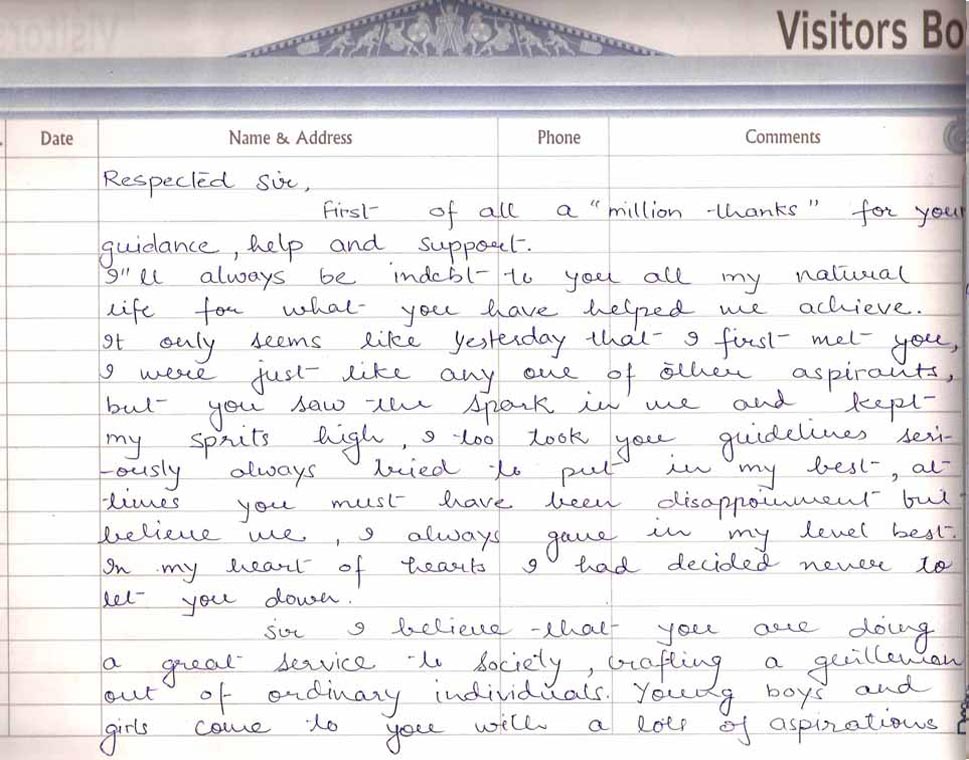 Visitors Bo
Date Name & Address Phone Comments
Respected Sir,
First of all a "million thanks" for your
guidance, help and support.
I"ll always be indebt to you all my natural
life for what you have helped me achieve.
It only seems like yesterday that I first met you,
I were just like any one of other aspirants,
but you saw the spark in me and kept
my sprits high, I too took you guidelines seri-
-ously always tried to put in my best, at
times you must have been disappoinment but
believe me, I always gave in my level best.
In my heart of hearts I had decided never to
let you down.
Sir I believe that you are doing
a great service to society, crafting a
out of ordinary individuals. Young boys and
girls come to you with a lots of aspirations